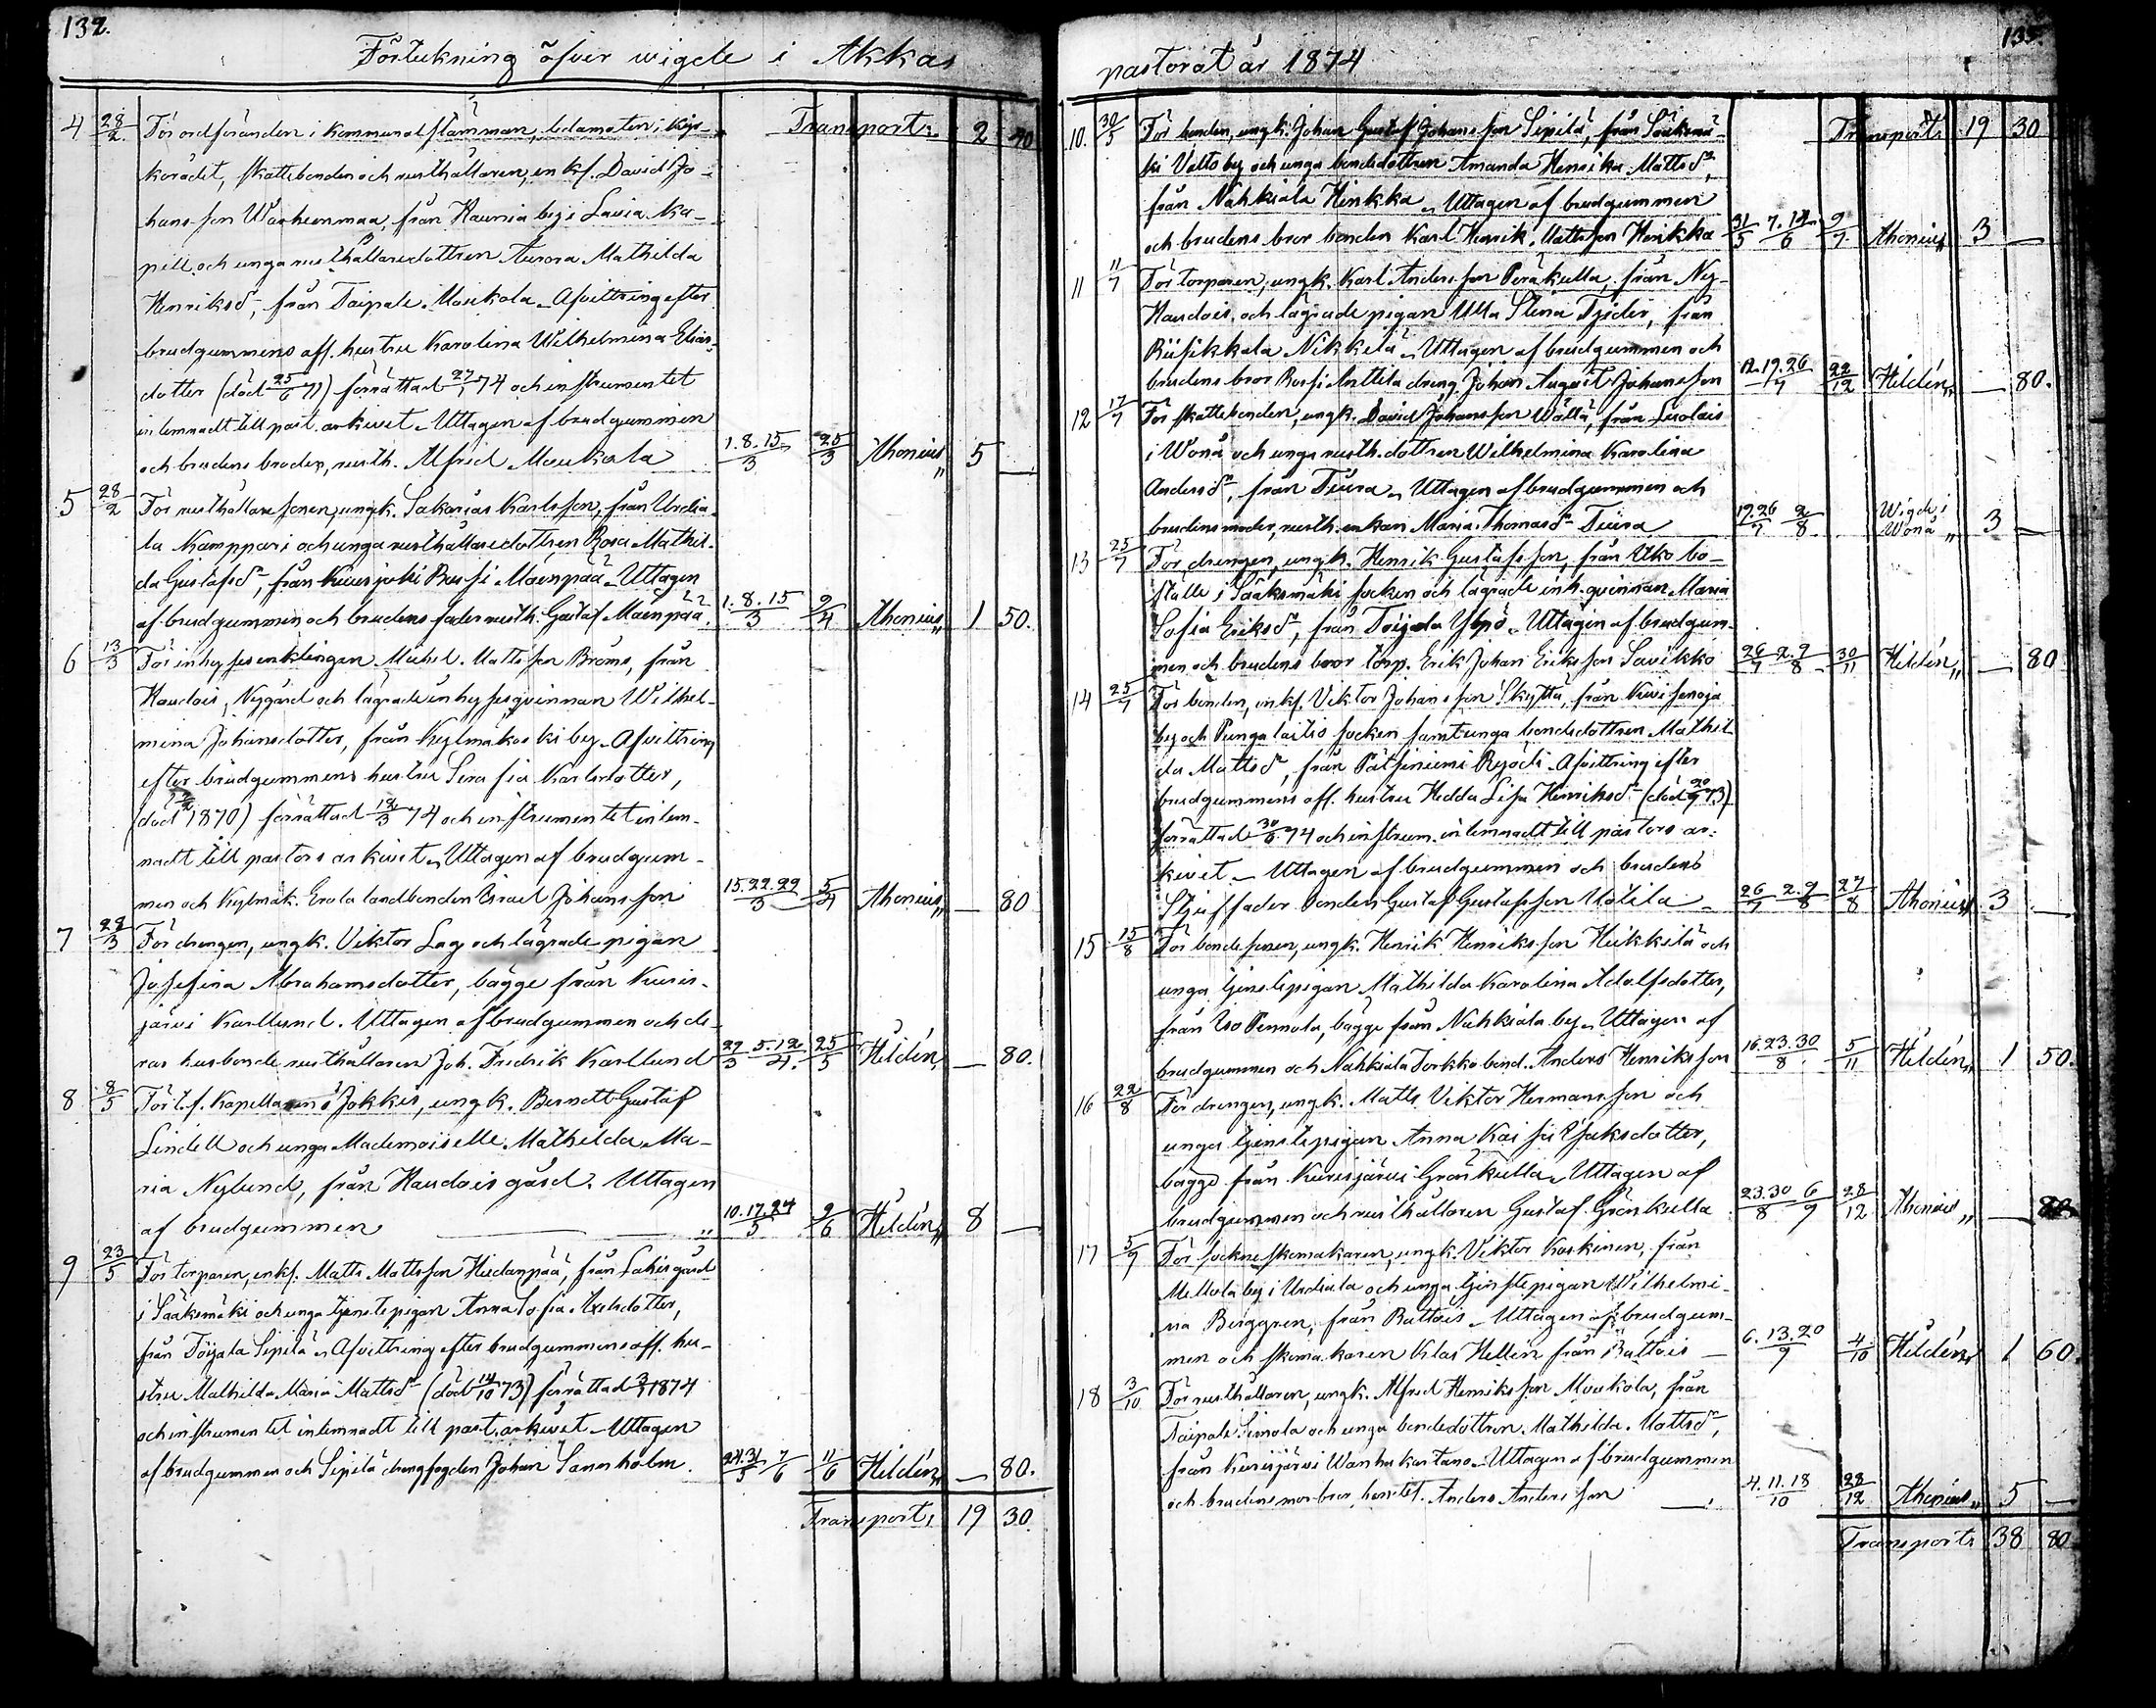 132.
Förteckning öfver wigde i Akkas
4 28/2 För ordföranden i Kommunalstämman, ledamoten i Kyr- Transport: 2 40
korådet, skattebonden och rusthållaren, enkl. David Jo-
hansson Wanheenmaa, från Haunia by i Lavia Ka-
pell och unga rusthållaredottren Aurora Mathilda
Henriksdr, från Taipale Moukola. Afvittring efter
brudgummens afl. hustru Karolina Wilhelmina Elias-
dotter (död 25/6 71) förrättad 27/1 74 och instrumentet
inlemnadt till past. arkivet. Uttagen af brudgummen
och brudens broder, rusth. Alfred Moukola 1.8.15/3 25/3 Ahonius 5 —
5 28/2 För rusthållaresonen, ungk. Sakarias Karlsson, från Urdia-
la Kamppari och unga rusthållaredottren Rosa Mathil-
da Gustafsdr, från Kurisjoki Bussi Mäenpää. Uttagen
af brudgummen och brudens fader rusth. Gustaf Mäenpää. 1.8.15/3 9/4 Ahonius 1 50.
6 13/3 För inhysesenklingen Michel Mattsson Broms, från
Haudois, Nygård och lägrade inhysesqvinnan Wilhel-
mina Johansdotter, från Kylmäkoski by. Afvittring
efter brudgummens hustru Serafia Karlsdotter,
(död 1870) förrättad 12/3 74 och instrumentet inlem-
nadt till pastors arkivet. Uttagen af brudgum-
men och Kylmäk. Erola landbonden Israel Johansson 15.22.29/3 5/4 Ahonius — 80
7 28/3 För drengen, ungk. Viktor Lag och lägrade pigan
Josefina Abrahamsdotter, bägge från Kuris-
järvi Karllund. Uttagen af brudgummen och de-
ras husbonde rusthållaren Joh. Fredrik Karllund 29/3 5.12/4. 25/5 Heldén — 80.
8 8/5 För t.f. Kapellanen i Jokkis, ungk. Berndt Gustaf
Lindell och unga Mademoiselle Mathilda Ma-
ria Nylund, från Haudois gård. Uttagen
af brudgummen 10.17.24/5 9/6 Heldén 8 —
9 23/5 För torparen, enkl. Matts Mattsson Hiidanpää, från Lahisgård
i Sääksmäki och unga tjenstepigan Anna Sofia Axelsdotter,
från Toijala Sipilä. Afvittring efter brudgummens afl. hu-
stru Mathilda Maria Mattsdr (död 14/10 73) förrättad 1874
och instrumentet inlemnadt till past. arkivet. Uttagen
af brudgummen och Sipilä drengfogden Johan Sannholm. 24.31/5 7/6 11/6 Heldén — 80.
Transport: 19 30.
133.
pastorat år 1874
10. 30/5 För bonden, ungk. Johan Gustaf Johansson Sipilä, från Sääksmä- Transport: 19 30
ki Valto by och unga bondedottren Amanda Henrika Mattsdr,
från Nahkiala Hinkka. Uttagen af brudgummen
och brudens bror bonden Karl Henrik Mattsson Hinkka 31/5 7.14/6 9/7 Ahonius 3 —
11 11/7 För torparen, ungk. Karl Andersson Peräkulla, från Ny-
Haudois, och lägrade pigan Ulla Stina Tjeder, från
Riisikkala Nikkilä. Uttagen af brudgummen och
brudens bror Anttila dreng Johan August Johansson 12.19.26/7 22/12 Heldén — 80.
12 17/7 För skattebonden, ungk. David Johansson Wälttä, från Luolais
i Wonå och unga rusth. dottren Wilhelmina Karolina
Andersdr, från Tiura. Uttagen af brudgummen och
brudens moder, rusth. enkan Maria Thomasdr Tiura 19.26/7 2/8 Wigde i Wonå 3 —
13 25/7 För drengen, ungk. Henrik Gustafsson, från Uko bo-
ställe i Sääksmäki socken och lägrade inh. qvinnan Maria
Sofia Eriksdr, från Toijala Yspö. Uttagen af brudgum-
men och brudens bror torp. Erik Johan Eriksson Savikko 26/7 2.9/8 30/11 Heldén — 80
14 25/7 För bonden, enkl. Viktor Johansson Skyttä, från Kuisenoja
by och Pungalaitio socken samt unga bondedottren Mathil-
da Mattsdr, från Pätsiniemi Ryödi. Afvittring efter
brudgummens afl. hustru Hedda Lisa Henriksdr (död 20/9 73)
förrättad 30/6 74 och instrum. inlemnadt till pastors ar-
kivet. Uttagen af brudgummen och brudens
Styffader bonden Gustaf Gustafsson Uotila 26/7 2.9/8 27/8 Ahonius 3 —
15 15/8 För bondesonen, ungk. Henrik Henriksson Heikkilä och
unga tjenstepigan Mathilda Karolina Adolfsdotter,
från Iso Pennola, bägge från Nahkiala by. Uttagen af
brudgummen och Nahkiala Torkko bond. Anders Henriksson 16.23.30/8 5/11 Heldén 1 50.
16 22/8 För drengen, ungk. Matts Viktor Hermansson och
unga tjenstepigan Anna Kaisa Isaksdotter,
bägge från Kurisjärvi Grönkulla. Uttagen af
brudgummen och rusthållaren Gustaf Grönkulla 23.30/8 6/9 28/12 Ahonius — 80
17 5/9 För sockneskomakaren, ungk. Viktor Koskinen, från
Mellola by i Urdiala och unga tjenstepigan Wilhelmi-
na Berggren, från Rattois. Uttagen af brudgum-
men och skomakaren Klas Hellén från Rattois — 6.13.20/9 4/10 Heldén 1 60.
18 3/10 För rusthållaren, ungk. Alfred Henriksson Moukola, från
Taipale Simola och unga bondedottren Mathilda Mattsdr,
från Kurisjärvi Wanhakartano. Uttagen af brudgummen
och brudens morbror, Anders Andersson 4.11.18/10 28/12 Ahonius 5 —
Transport: 38 80